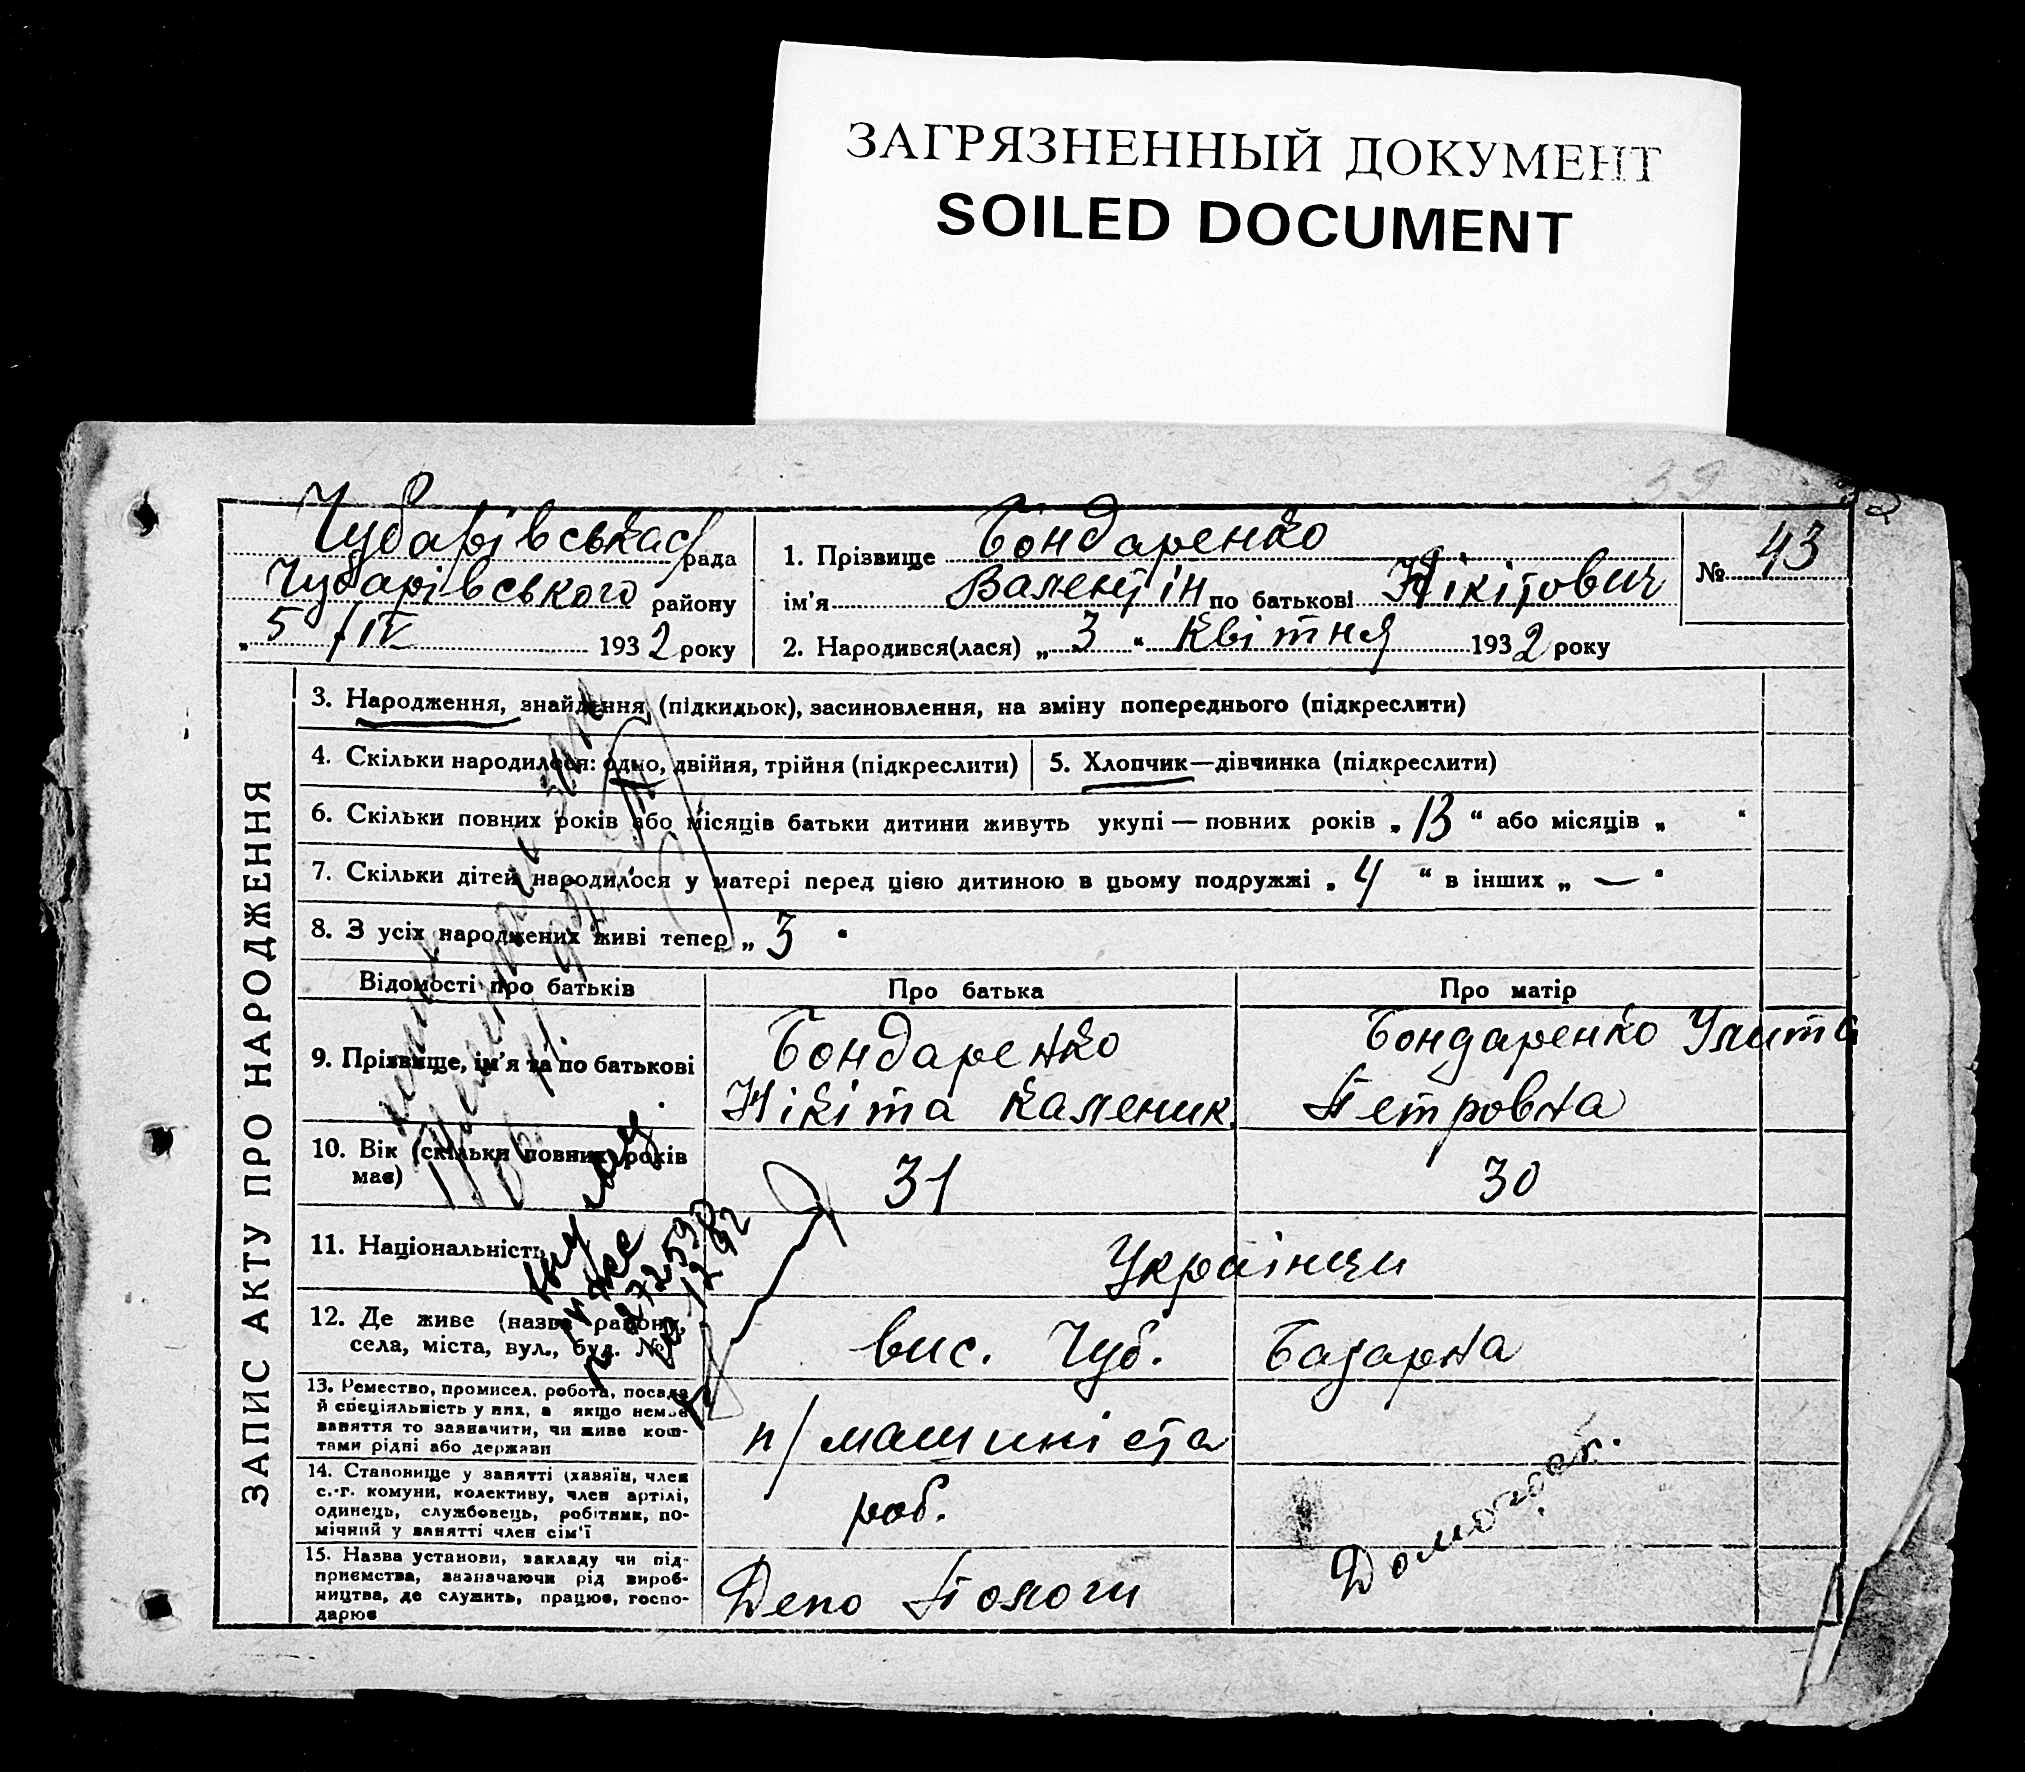 ЗАГРЯЗНЕННЫЙ ДОКУМЕНТ
SOILED DOCUMENT
Чубарівська рада
Чубарівського району
„ 5 /IV 1932 року
1. Прізвище Бондаренко
ім'я Валентін по батькові Нікітович
2. Народився(лася) „ 3 “ Квітня 1932 року
№ 43
ЗАПИС АКТУ ПРО НАРОДЖЕННЯ
3. Народження, знайдення (підкидьок), засиновлення, на зміну попереднього (підкреслити)
4. Скільки народилося: одно, двійня, трійня (підкреслити)
5. Хлопчик—дівчинка (підкреслити)
6. Скільки повних років або місяців батьки дитини живуть укупі — повних років „ 13 “ або місяців „ “
7. Скільки дітей народилося у матері перед цією дитиною в цьому подружжі „ 4 “ в інших „ — “
8. З усіх народжених живі тепер „ 3 “
Відомості про батьків
Про батька
Про матір
9. Прізвище, ім'я та по батькові
Бондаренко
Нікіта Каленик.
Бондаренко Улита
Петровна
10. Вік (скільки повних років
має)
31
30
11. Національність
Українци
12. Де живе (назва району,
села, міста, вул., буд. №)
вис. Чуб. Базарна
13. Ремество, промисел, робота, посада
й спеціяльність у них, а якщо немає
заняття то зазначити, чи живе кош-
тами рідні або держави
п/машиніста
14. Становище у занятті (хазяїн, член
с.-г. комуни, колективу, член артілі,
одинець, службовець, робітник, по-
мічний у занятті член сім'ї
роб.
Домогосп.
15. Назва установи, закладу чи під-
приємства, зазначаючи рід вироб-
ництва, де служить, працює, госпо-
дарює
Депо Пологи